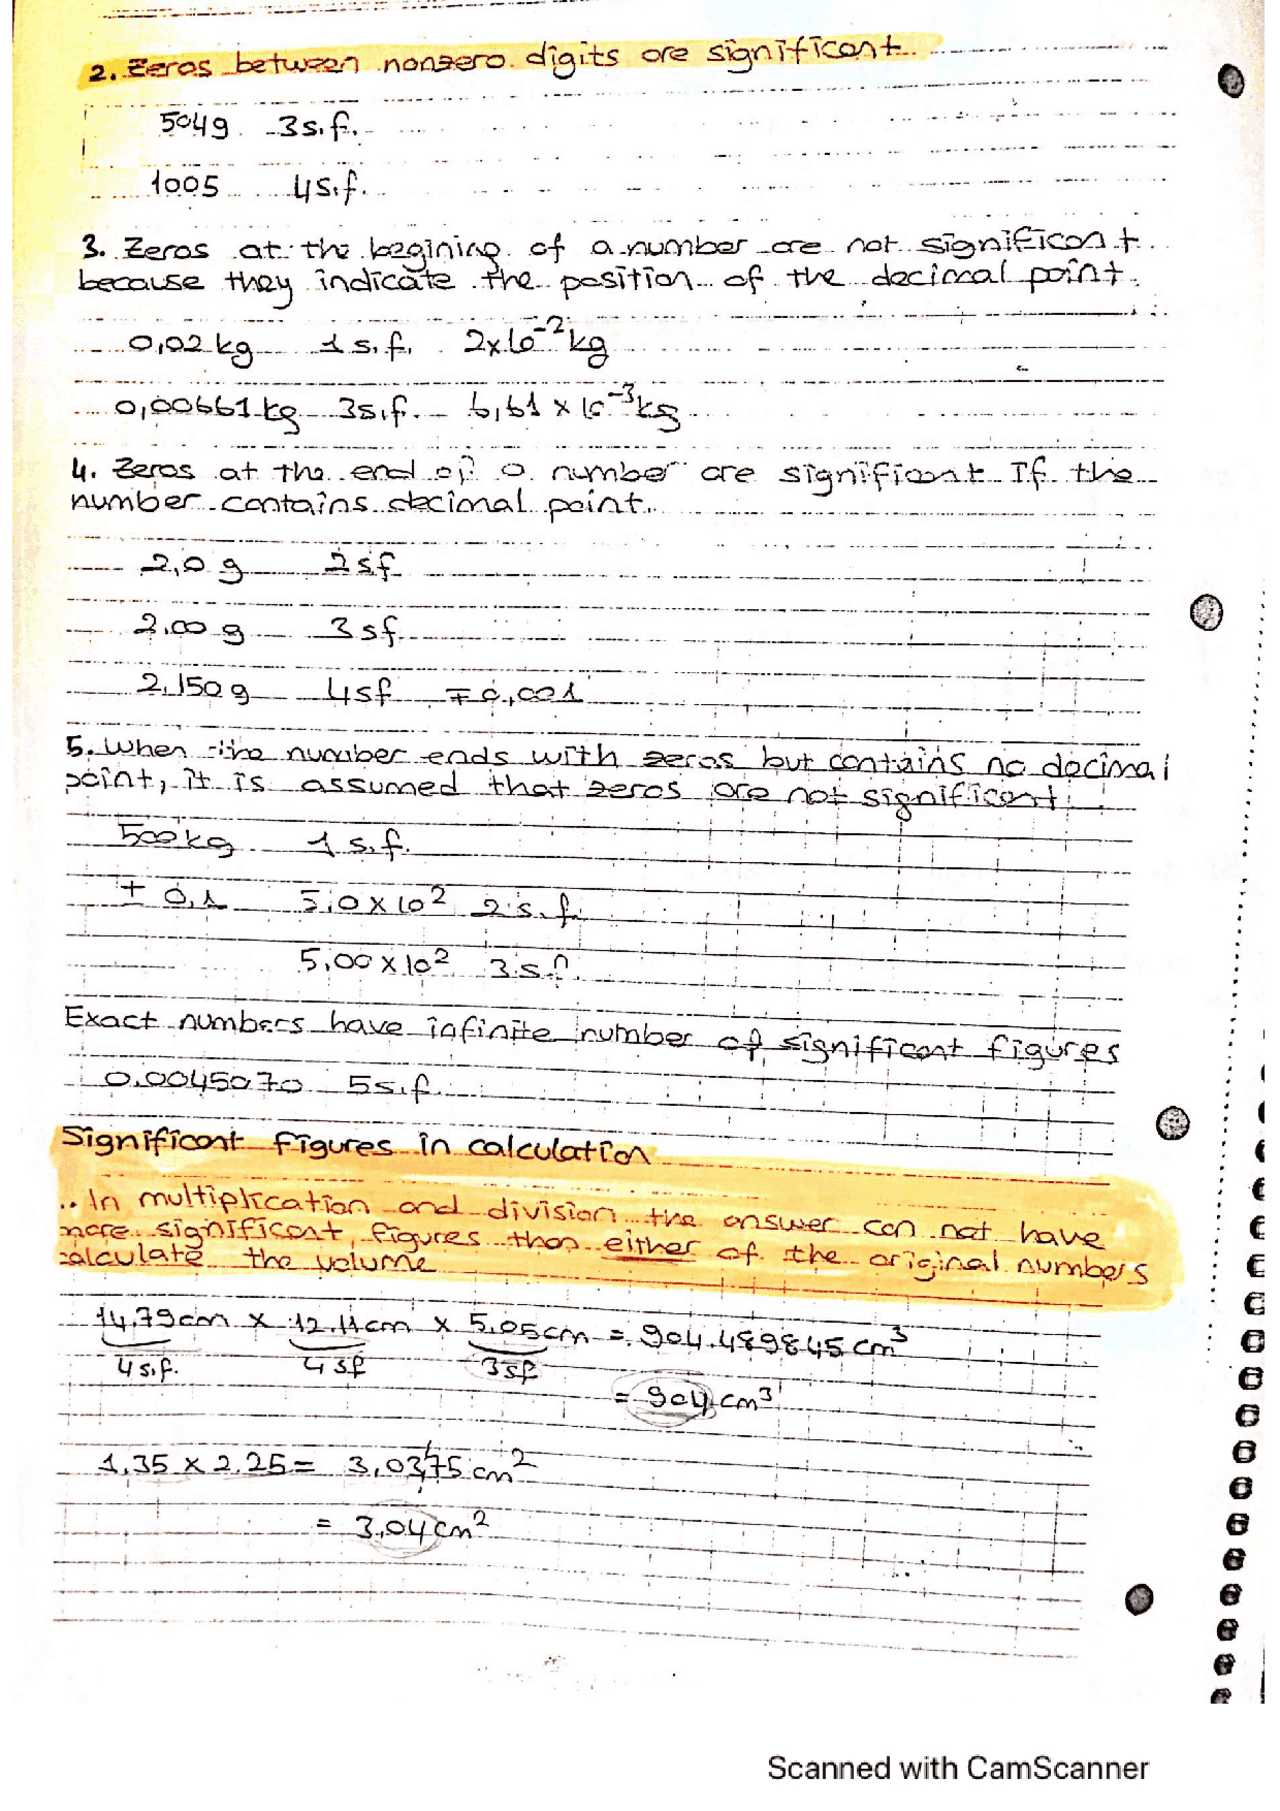 2. Zeros between nonzero digits are significant.
504g 3s.f.
1005 4s.f.
3. Zeros at the begining of a number are not significant
because they indicate the position of the decimal point.
0,02 kg 1 s.f. 2x10⁻² kg
0,00661 kg 3s.f. 6,61 x 10⁻³ kg
4. Zeros at the end of a number are significant If the
number contains decimal point.
2,0 g 2sf
2.00 g 3sf
2.150g 4sf ∓0,001
5. When the number ends with zeros but contains no decimal
point, it is assumed that zeros are not significant.
500kg 1 s.f.
± 0,1 5.0 x 10² 2 s.f.
5,00 x 10² 3 s.f.
Exact numbers have infinite number of significant figures
0.0045070 5s.f.
Significant figures in calculation
.. In multiplication and division the answer can not have
more significant figures than either of the original numbers
calculate the volume
14.79cm x 12.11cm x 5.05cm = 904.489845 cm³
4s.f. 4 sf 3sf
= 904 cm³
1.35 x 2.25 = 3,0375 cm²
= 3,04 cm²
Scanned with CamScanner